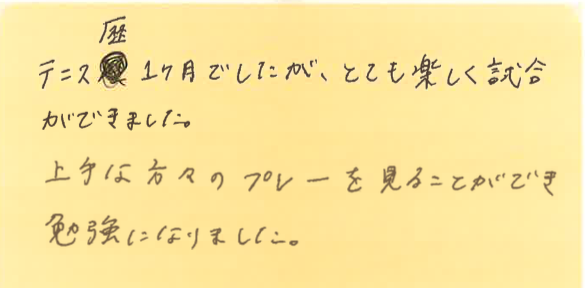 テニス歴1ヶ月でしたが、とても楽しく試合
ができました。
上手な方々のプレーを見ることができ
勉強になりました。